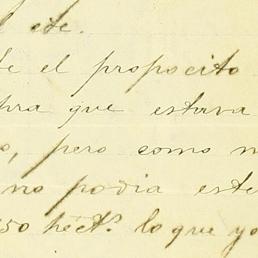 ete.
el propocito
que estava
o, pero como
no podia este
50 héctˢ. lo que yo